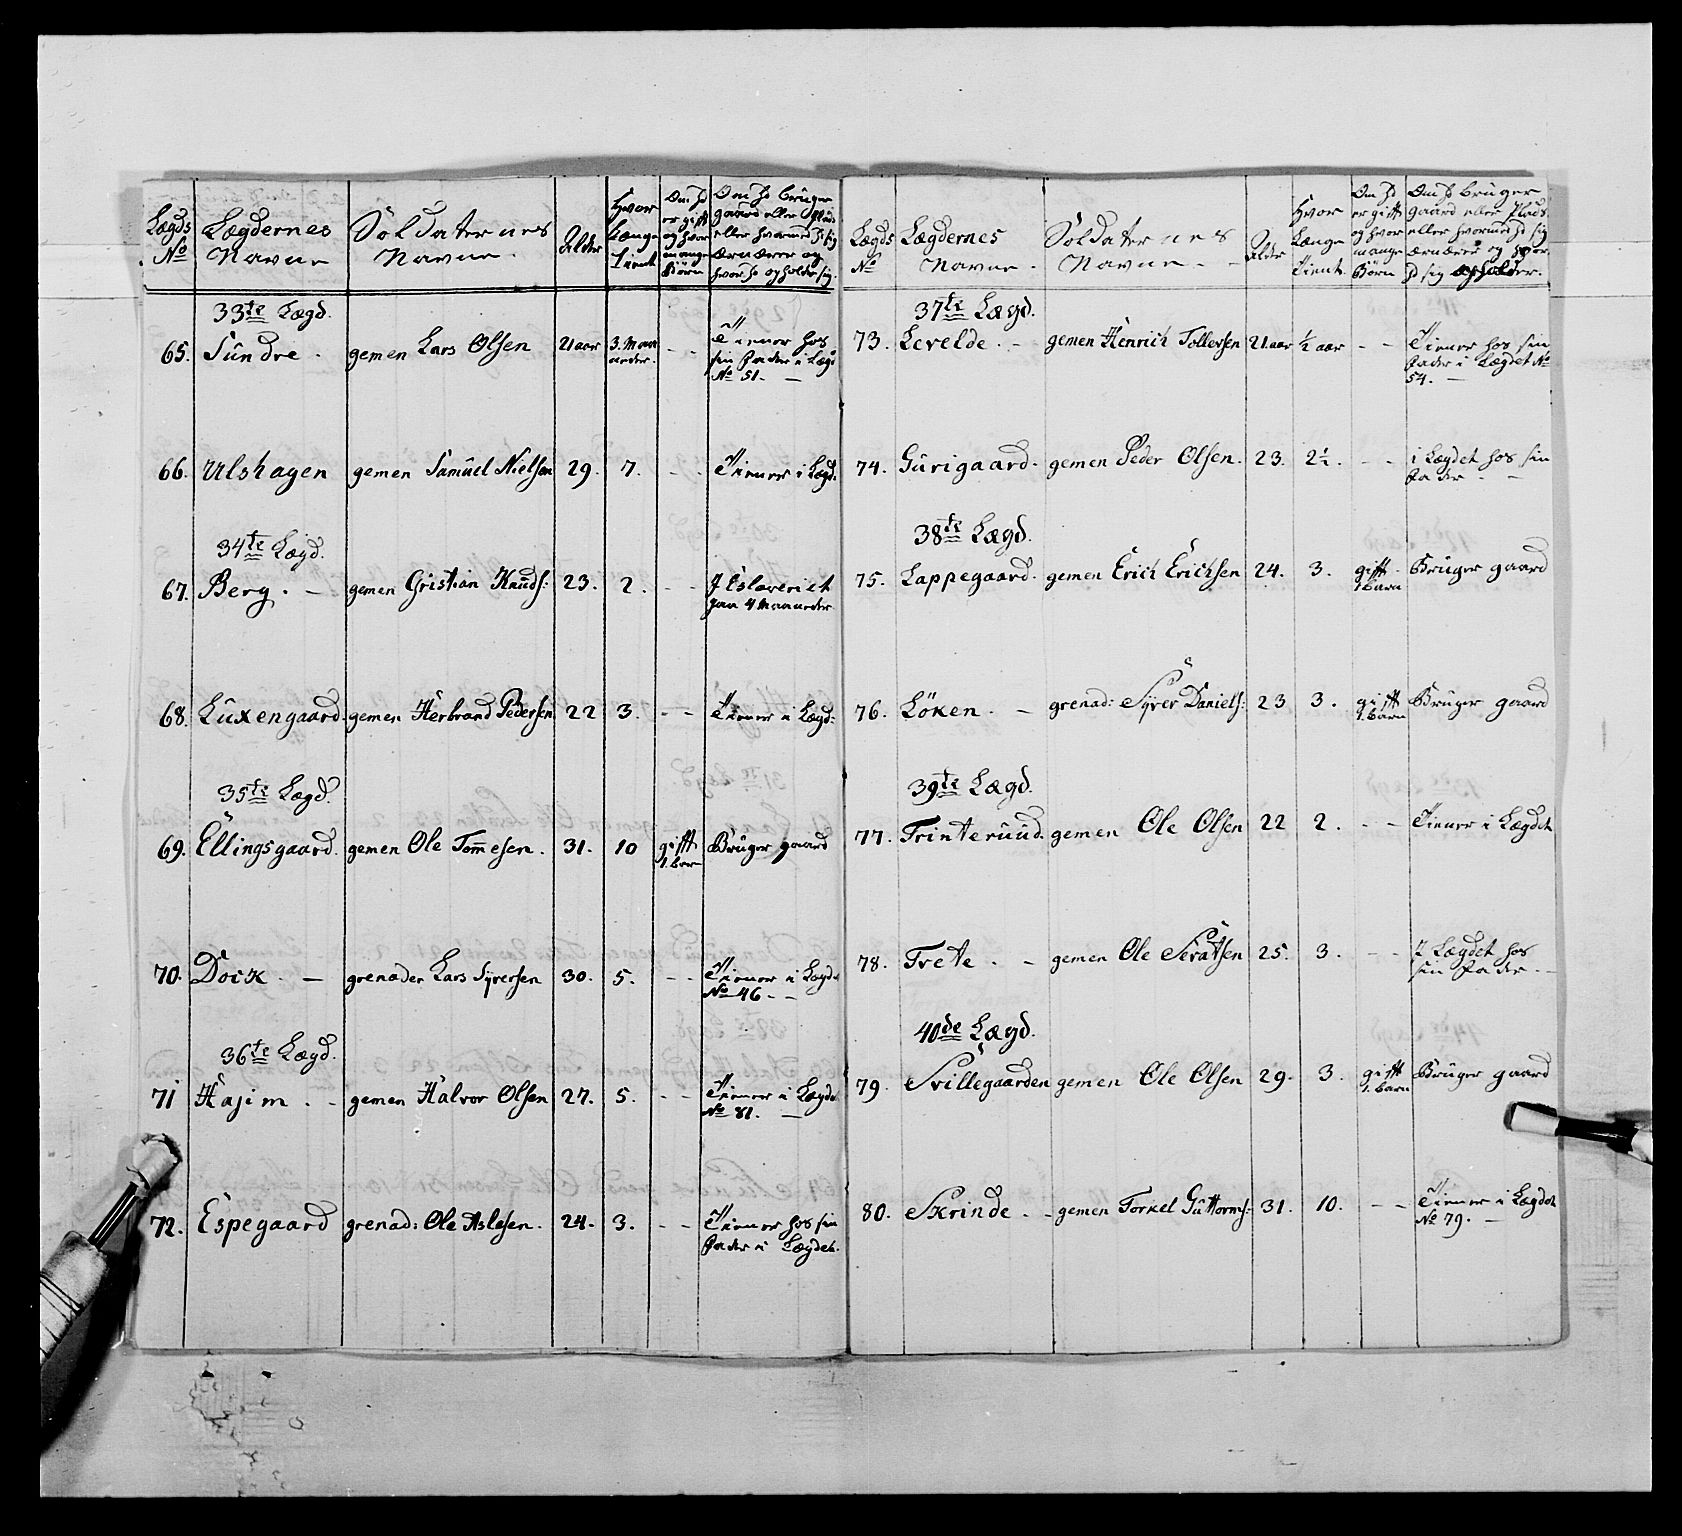 Lægds No | Lægdernes Navne | Soldaternes Navne | Alder | Hvor længe tient | Om H er gift og hvor mange Børn | Om H bruger gaard eller Plads eller hvormed H sig ærnærer og hvor H opholder sig
33te Lægd.
65. Sundre. gemen Lars Olsen 21 aar 3. Maaneder. - - Tiener hos sin Fader i Lægd No 51. -
66. Ulshagen gemen Samuel Nielsen 29. 7. - - Tiener i Lægd.
34te Lægd.
67. Berg. - gemen Cristian Knuds: 23. 2. - - I Slaveriet paa 4 Maaneder
68. Luxengaard. gemen Herbrand Pedersen 22 3. - - Tiener i Lægd:
35te Lægd.
69. Ellingsgaard. gemen Ole Tom̅esen. 31. 10 gift 1. Barn Bruger gaard
70. Dock. - grenader Lars Syversen 30. 5. - - Tiener i Lægde No 46 - -
36te Lægd.
71 Hajim. - gemen Halvor Olsen 27. 5. - - Tiener i Lægde No 81. -
72. Espegaard grenad: Ole Aslesen. 24. 3. - - Tiener hos sin Fader i Lægdet.
Lægds No | Lægdernes Navne. | Soldaternes Navne. - | Alder | Hvor længe tient. | Om H er gift og hvor mange Børn | Om H bruger gaard eller Plads eller hvormed H sig ærnærer og hvor H sig opholder.
37te Lægd.
73. Levelde. - gemen Henrich Tollersen 21. aar ½ aar - - Tiener hos sin Fader i Lægdet No 54. -
74. Gurigaard. gemen Peder Olsen. 23. 2½. - - i Lægdet hos sin Fader. -
38te Lægd.
75. Lappegaard. gemen Erich Erichsen 24. 3. gift 1 Barn Bruger gaard
76. Löken. - grenad: Syver Daniels: 23 3. gift 1. Barn Bruger gaard
39te Lægd.
77. Trinteruud. gemen Ole Olsen 22 2. - - Tiener i Lægdet
78. Trete. - gemen Ole Seratsen 25. 3. - - I Lægdet hos sin Fader. -
40de Lægd.
79. Svillegaarden gemen Ole Olsen 29. 3. gift 1. Barn Bruger gaard
80. Skrinde. - gemen Torkel Guttorms: 31. 10. - - Tiener i Lægdet No 79. -